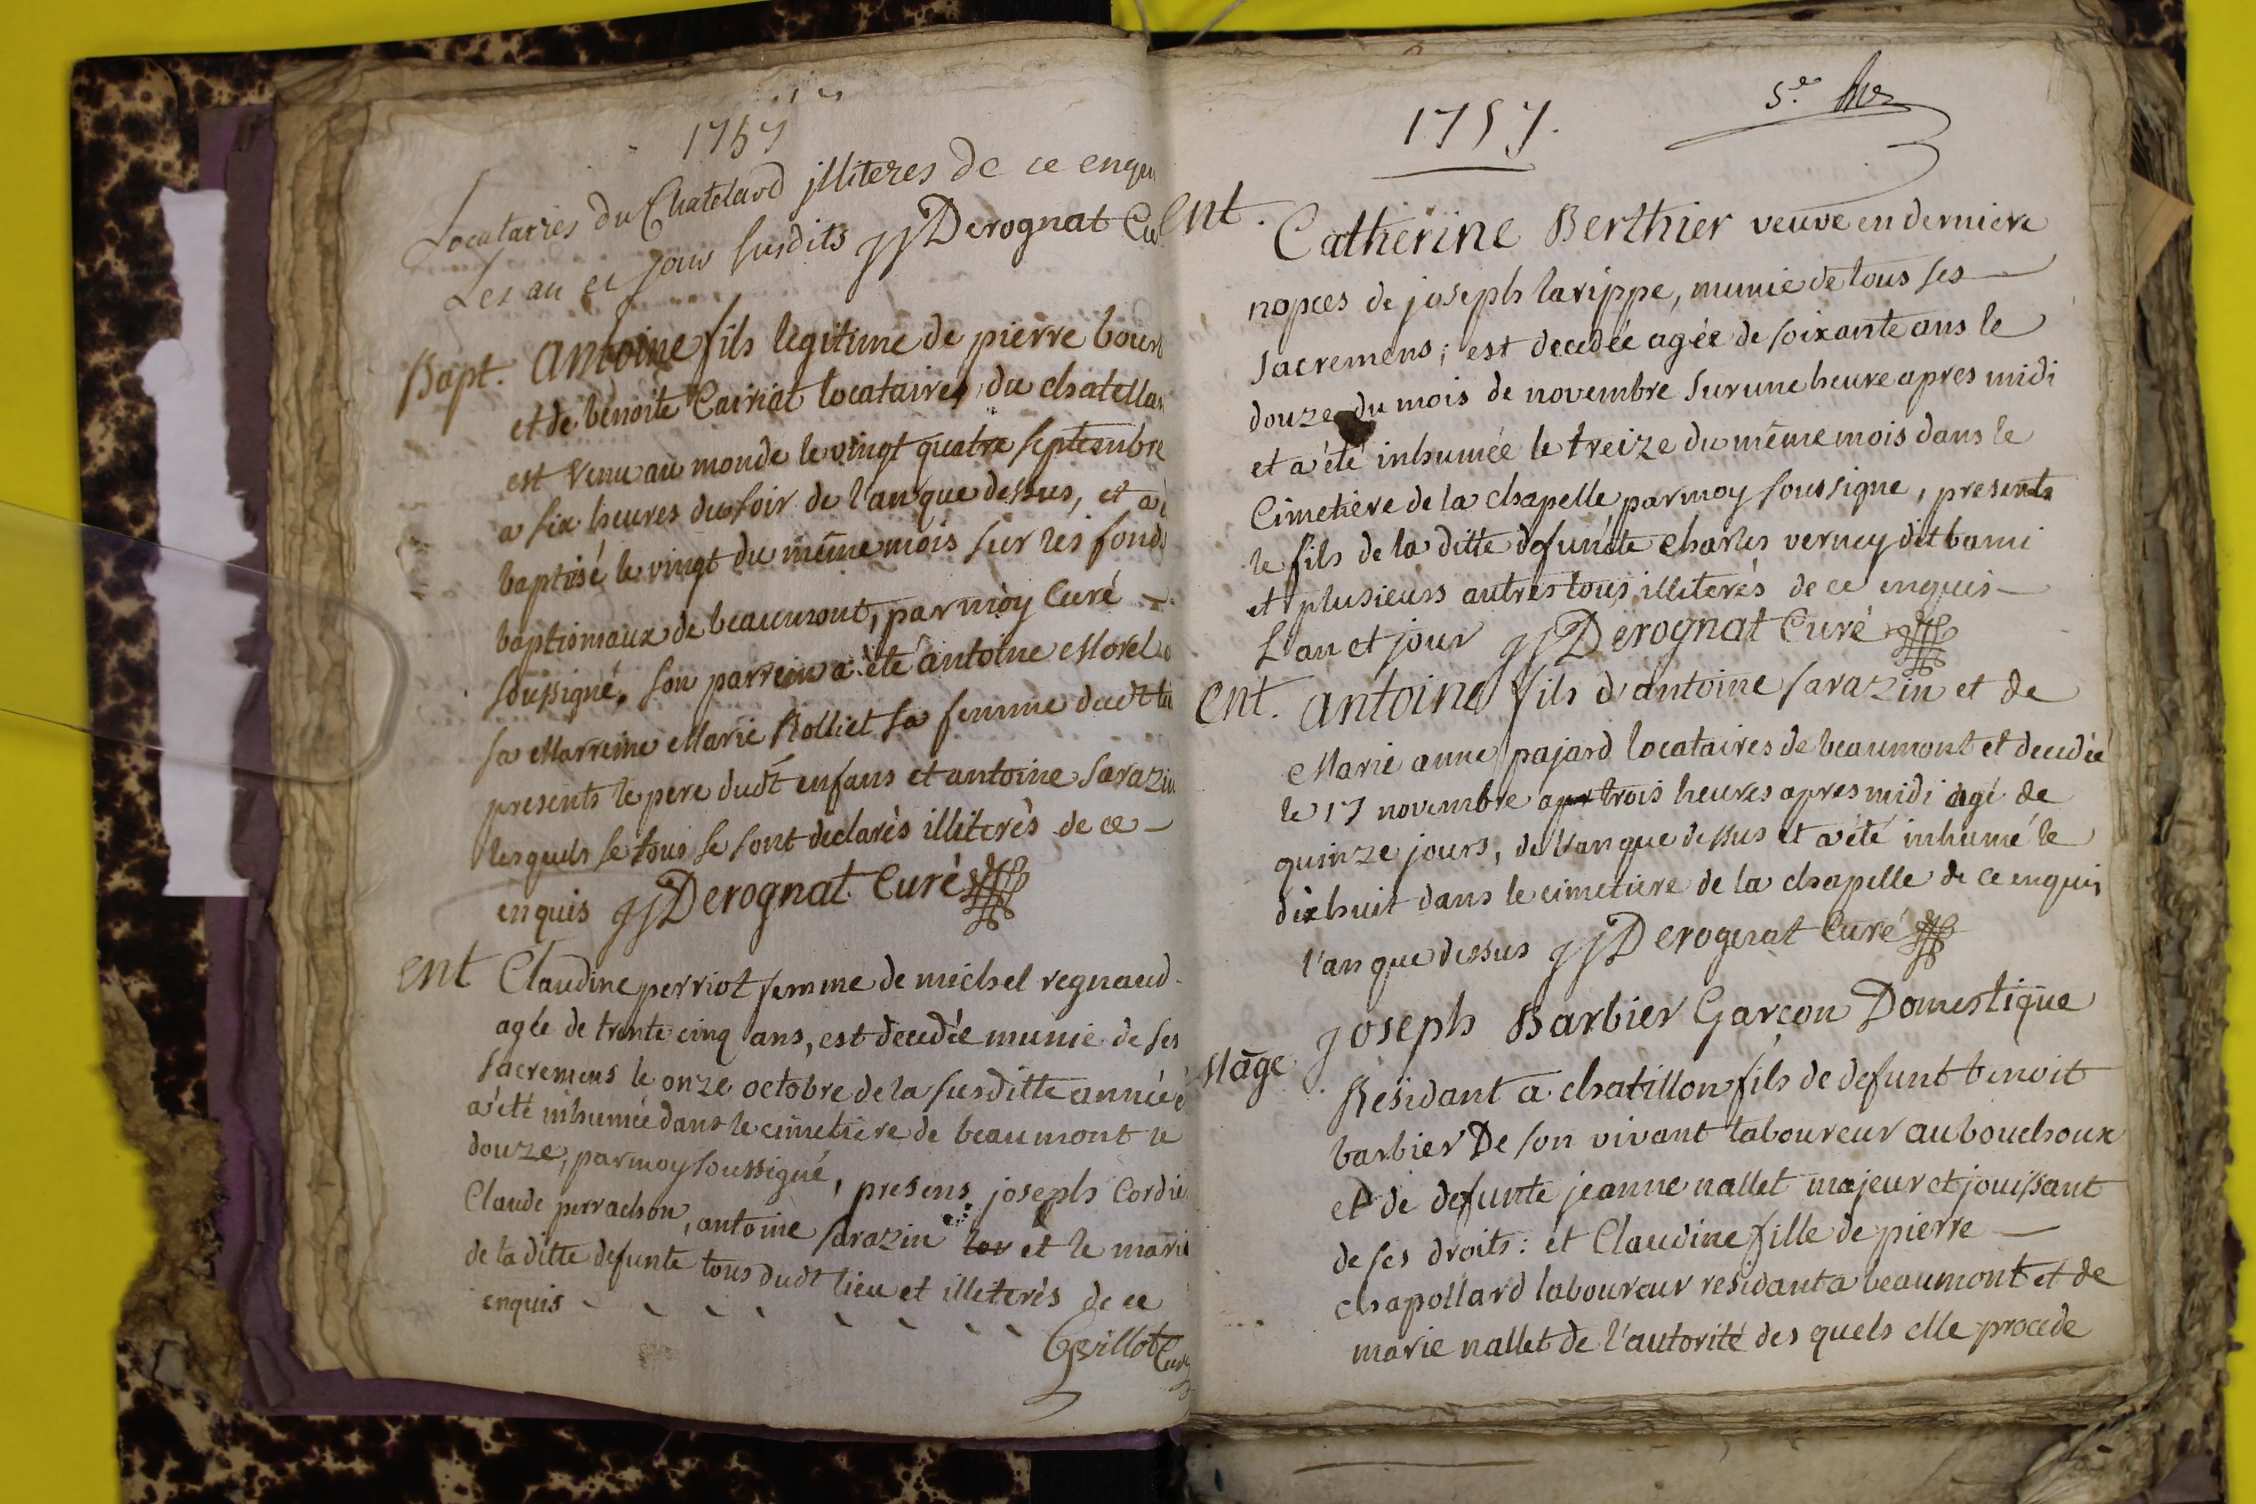 1757
Locataires du Chatelard jlliteres de ce enqu
Les an et jour susdits jjDerognat Cu
Bapt. Antoine fils legitime de pierre bour
et de benoite Cairiat locataires du chatellar
est venu au monde le vingt quatre septembre
a six heures du soir de l'an que dessus, et a
baptisé le vingt du même mois sur les fonds
baptismaux de beaumont, par moy Curé
soussigné, son parrein a été antoine Morel
sa Marreine Marie Rolliet sa femme dudt
presents le pere dudt enfans et antoine sarazin
lesquels se tous se sont declarés illiterés de ce
enquis jjDerognat Curé
ent Claudine perriot femme de michel regnaud
agée de trente cinq ans, est decedée munie de ses
sacremens le onze octobre de la susditte année
a été inhumée dans le cimetière de beaumont le
douze, par moy soussigné, presens joseph Cordie
Claude perrachon, antoine sarazin et le mari
de la ditte defunte tous dudt lieu et illiterés de ce
enquis
Grillot Curé
1757.
ent. Catherine Berthier veuve en derniere
nopces de joseph larippe, munie de tous ses
sacremens; est decedée agée de soixante ans le
douze du mois de novembre sur une heure apres midi
et a été inhumée le treize du même mois dans le
Cimetière de la chapelle par moy soussigne, presents
le fils de la ditte defuncte charles verney dit bami
et plusieurs autres tous illiterés de ce enquis
L'an et jour jjDerognat Curé
ent. antoine fils d'antoine sarazin et de
Marie anne pajard locataires de beaumont et decedée
le 17 novembre apr trois heures apres midi agé de
quinze jours, de l'an que dessus et a été inhumé le
dix huit dans le cimetiere de la chapelle de ce enquis
l'an que dessus jjDerognat Curé
joseph Barbier Garcon Domestique
Mage Residant a chatillon fils de defunt benoit
barbier De son vivant laboureur au bouchoux
et de defunte jeanne nallet majeur et jouissant
de ses droits: et Claudine fille de pierre
chapollard laboureur residant a beaumont et de
marie nallet de l'autorité des quels elle procede